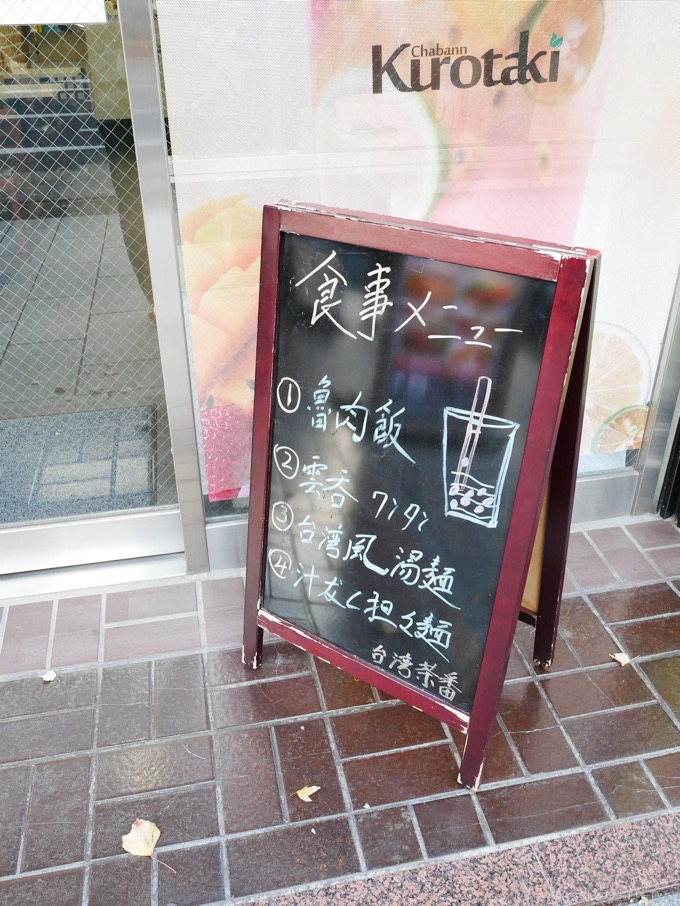 Chabann
Kurotaki
食事メニュー
① 魯肉飯
② 雲呑 ワンタン
③ 台湾風 湯麺
④ 汁なし担々麺
台湾茶番